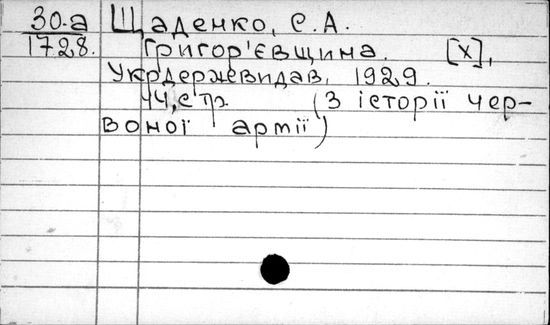 30-а Щаденко, Є.А.
1728. Григор'євщина. [Х],
Укрдержвидав, 1929.
44, стр. (З історії чер-
воної армії)